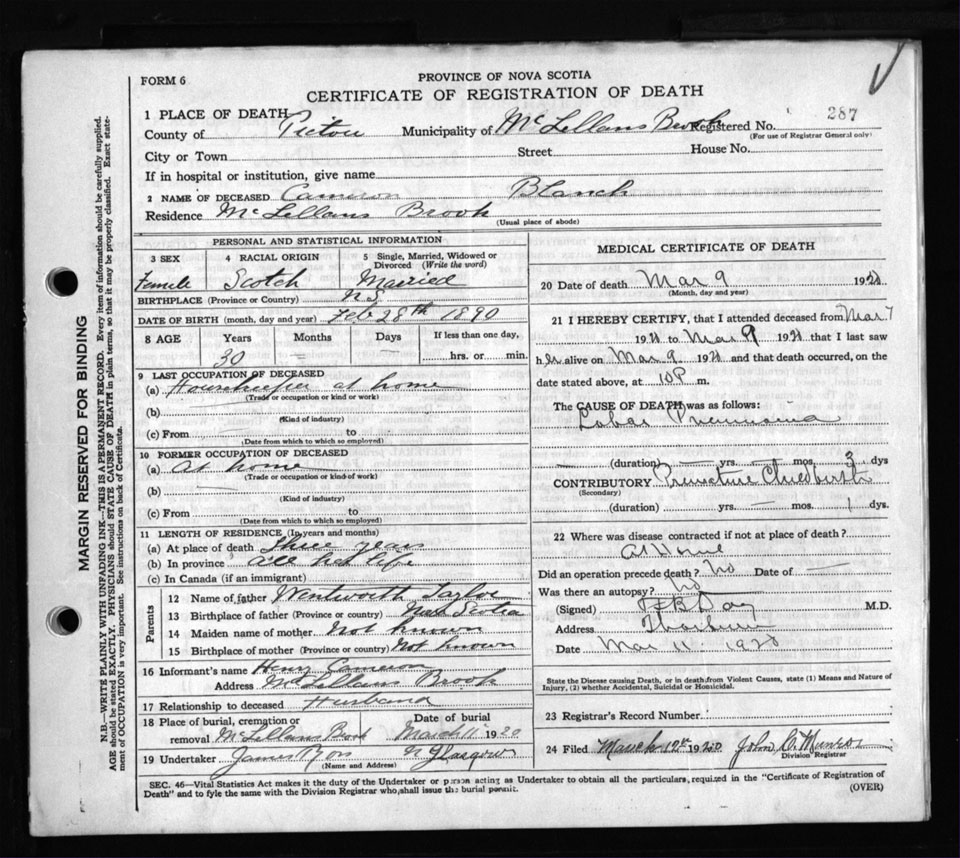 FORM 6
PROVINCE OF NOVA SCOTIA
CERTIFICATE OF REGISTRATION OF DEATH
1 PLACE OF DEATH
County of Pictou Municipality of McLellans Brook Registered No. 287
(For use of Registrar General only)
City or Town Street House No.
If in hospital or institution, give name
2 NAME OF DECEASED Cameron Blanch
Residence McLellans Brook
(Usual place of abode)
PERSONAL AND STATISTICAL INFORMATION
3 SEX 4 RACIAL ORIGIN 5 Single, Married, Widowed or Divorced (Write the word)
Female Scotch Married
BIRTHPLACE (Province or Country) N.S.
DATE OF BIRTH (month, day and year) Feb 28th 1890
8 AGE Years Months Days If less than one day,
30 — — hrs. or min.
9 LAST OCCUPATION OF DECEASED
(a) Housekeeper at home
(Trade or occupation or kind or work)
(b)
(Kind of industry)
(c) From to
(Date from which to which so employed)
10 FORMER OCCUPATION OF DECEASED
(a) At home
(Trade or occupation or kind of work)
(b) —
(Kind of industry)
(c) From to
(Date from which to which so employed)
11 LENGTH OF RESIDENCE (In years and months)
(a) At place of death three years
(b) In province all her life
(c) In Canada (if an immigrant)
Parents
12 Name of father Wentworth Taylor
13 Birthplace of father (Province or country) Nova Scotia
14 Maiden name of mother Not known
15 Birthplace of mother (Province or country) Not known
16 Informant's name Henry Cameron
Address McLellans Brook
17 Relationship to deceased Husband
18 Place of burial, cremation or removal McLellans Brook Date of burial March 11 1920
19 Undertaker James Ross N Glasgow
(Name and Address)
MEDICAL CERTIFICATE OF DEATH
20 Date of death Mar 9 1920
(Month, day and year)
21 I HEREBY CERTIFY, that I attended deceased from Mar 7
1920 to Mar 9 1920 that I last saw
her alive on Mar 9 1920 and that death occurred, on the
date stated above, at 10 P m.
The CAUSE OF DEATH was as follows:
Lobar Pneumonia
— (duration) — yrs. — mos. 3 dys
CONTRIBUTORY Premature Childbirth
(Secondary)
(duration) — mos. 1 dys.
22 Where was disease contracted if not at place of death?
At Home
Did an operation precede death? No Date of —
Was there an autopsy? No
(Signed) Day M.D.
Address Thorburn
Date Mar 11 1920
State the Disease causing Death, or in death from Violent Causes, state (1) Means and Nature of
Injury, (2) whether Accidental, Suicidal or Homicidal.
23 Registrar's Record Number
24 Filed March 12th 1920 John Munro
Division Registrar
SEC. 46—Vital Statistics Act makes it the duty of the Undertaker or person acting as Undertaker to obtain all the particulars, required in the "Certificate of Registration of
Death" and to fyle the same with the Division Registrar who shall issue the burial permit.
(OVER)
MARGIN RESERVED FOR BINDING
N.B.—WRITE PLAINLY WITH UNFADING INK—THIS IS A PERMANENT RECORD. Every item of information should be carefully supplied.
AGE should be stated EXACTLY. PHYSICIANS should STATE CAUSE OF DEATH in plain terms, so that it may be properly classified. Exact statement of OCCUPATION is very important. See instructions on back of Certificate.